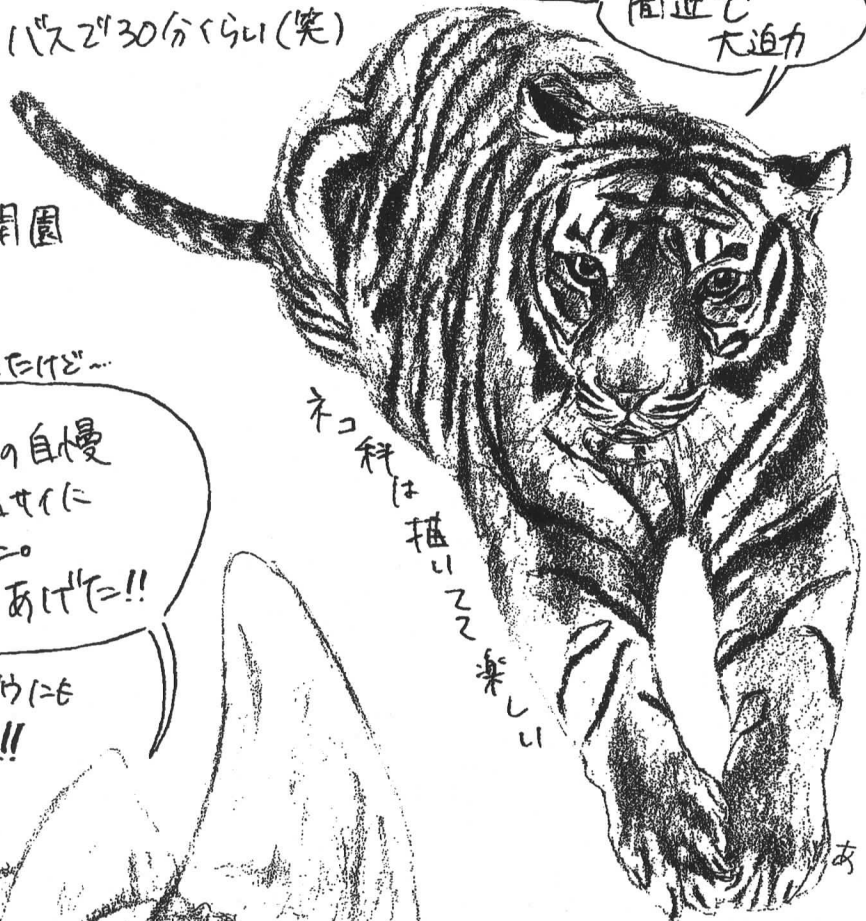 バスで30分くらい(笑)
間近で
大迫力
開園
たけど~
の自慢
サイに
た。
あげた!!
ウにも
!!
ネコ科は描いてて楽しい
あ